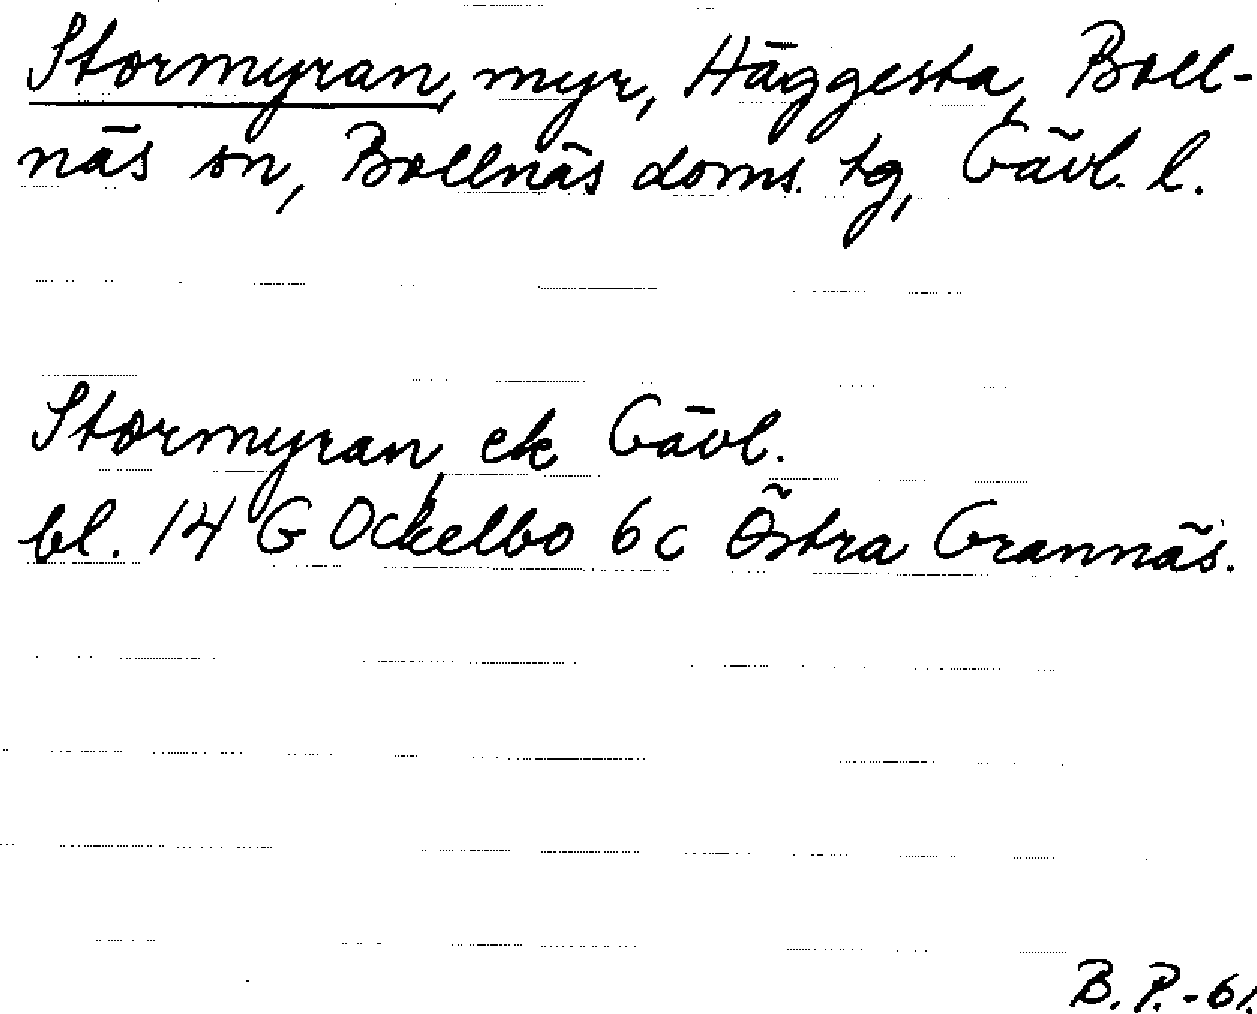 Stormyran, myr, Häggesta, Boll-
näs sn, Bollnäs doms. tg, Gävl. l.
Stormyran, ek Gävl.
bl. 14 G Ockelbo 6c Östra Grannäs.
B. P. - 61.